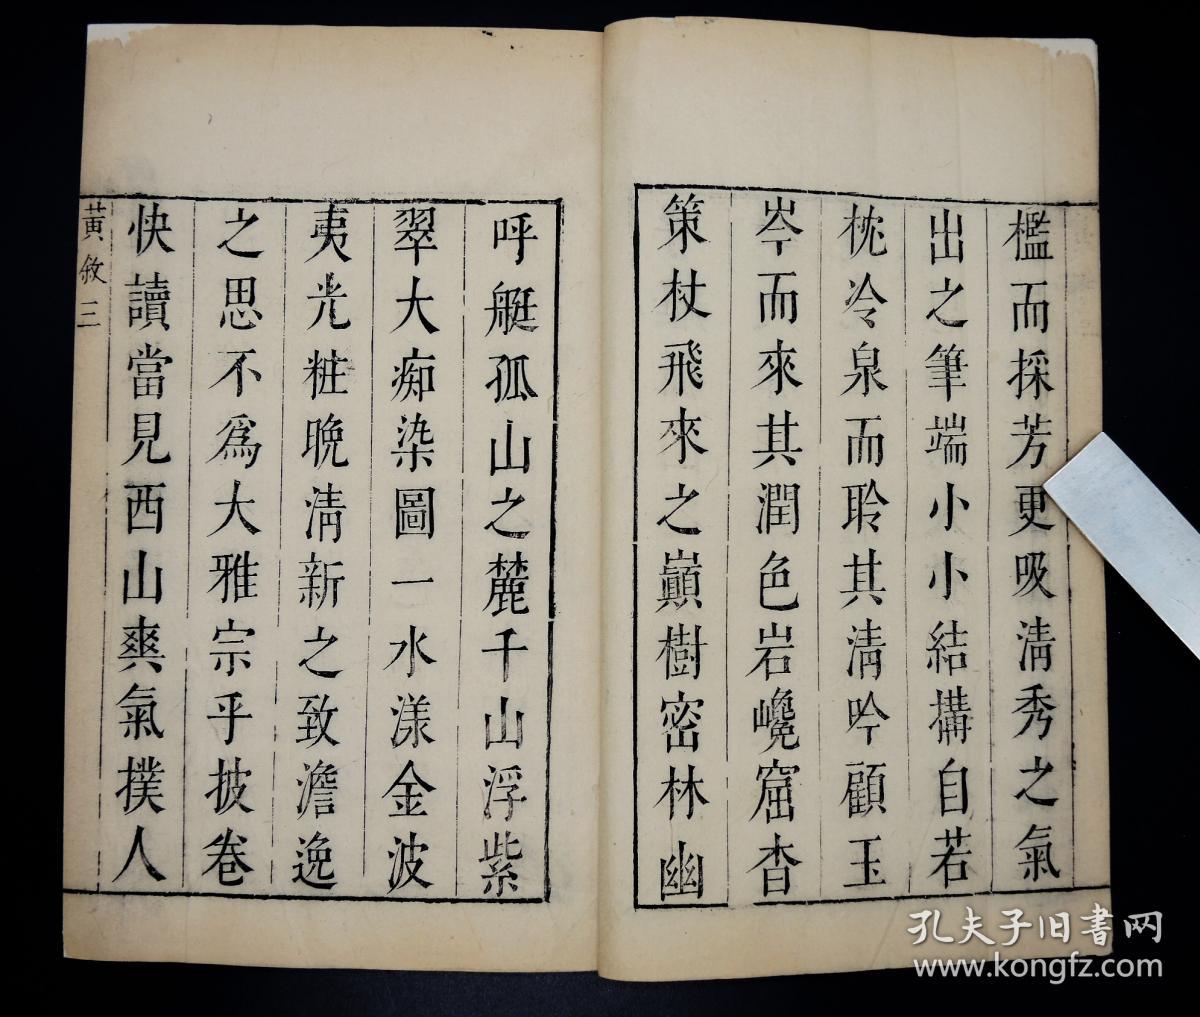 檻而採芳更吸清秀之氣
出之筆端小小結構自若
枕冷泉而聆其清吟顧玉
岑而來其潤色岩巉窟杳
策杖飛來之巔樹密林幽
呼艇孤山之麓千山浮紫
翠大痴染圖一水漾金波
夷光粧晚清新之致澹逸
之思不爲大雅宗乎披卷
快讀當見西山爽氣撲人
黃敘三
孔夫子旧書网
www.kongfz.com